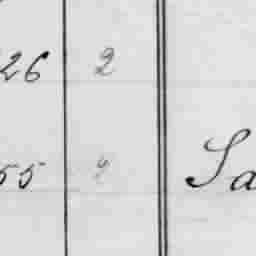 26 2
55 2 Sa